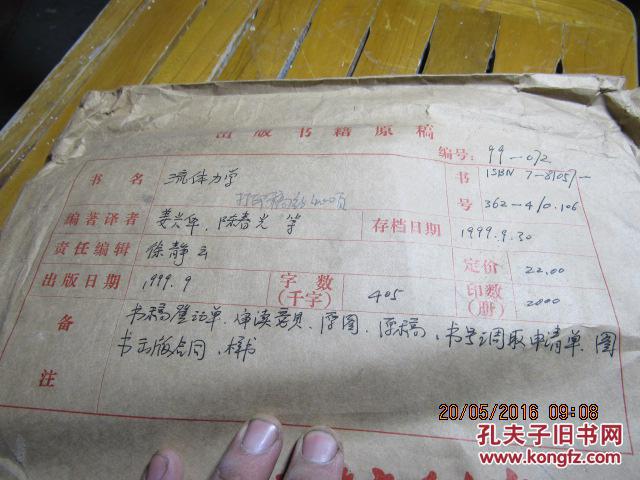 出版书籍原稿
编号: 99-012
书名 流体力学 书号 ISBN 7-81057-
打印稿 400页 362-4/O.106
编著译者 姜兴华、陈春光等 存档日期 1999.9.30
责任编辑 徐静云 定价 22.00
出版日期 1999.9 字数(千字) 405 印数(册) 2000
备注 书稿登记单、审读意见、原图、原稿、书号调取申请单、图
书出版合同、样书
20/05/2016 09:08
孔夫子旧书网
www.kongfz.com